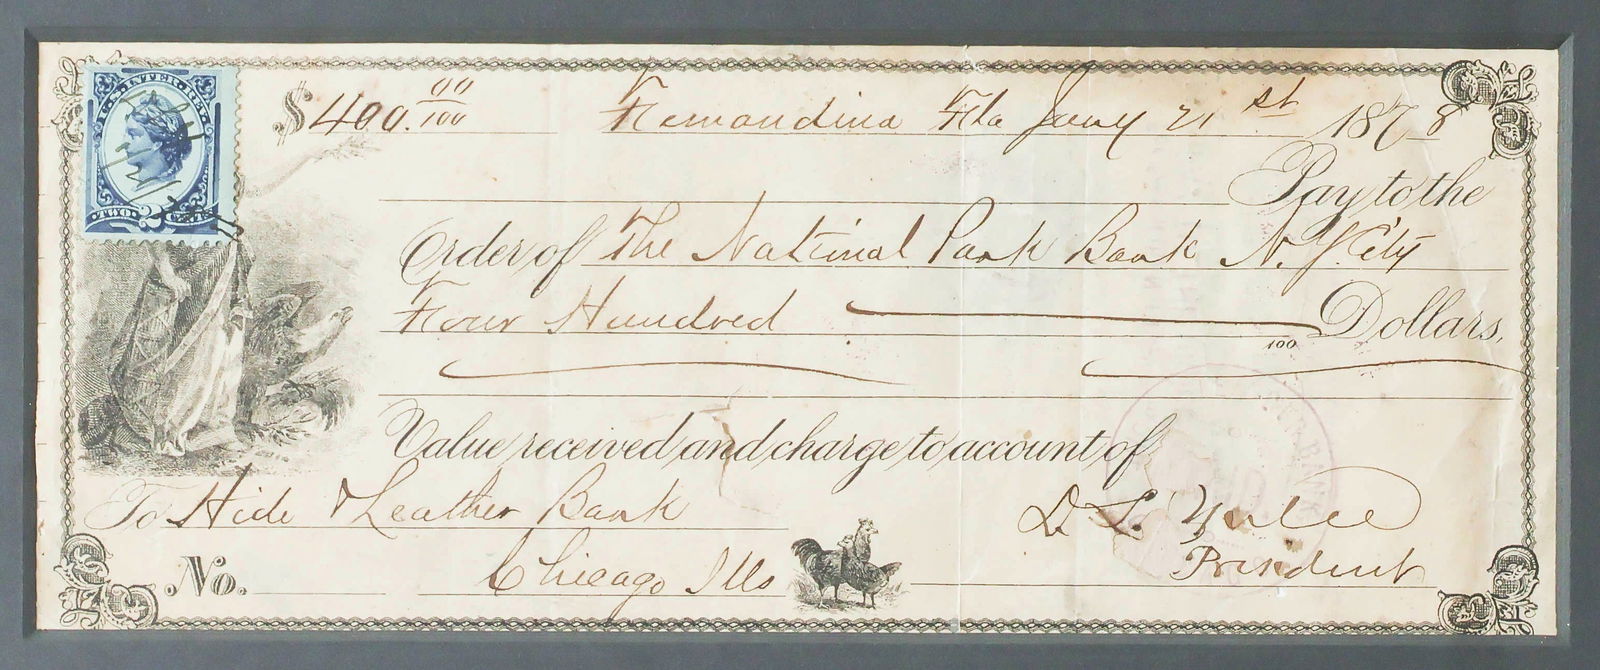 U.S. INTER. REV.
TWO 2 CENTS
$400.00/100 Fernandina Fla Jany 21st 1878
Pay to the
Order of The National Park Bank N. Y. City
Four Hundred 100 Dollars,
Value received and charge to account of
To Hide & Leather Bank D. L. Yulee
No. Chicago Ills President